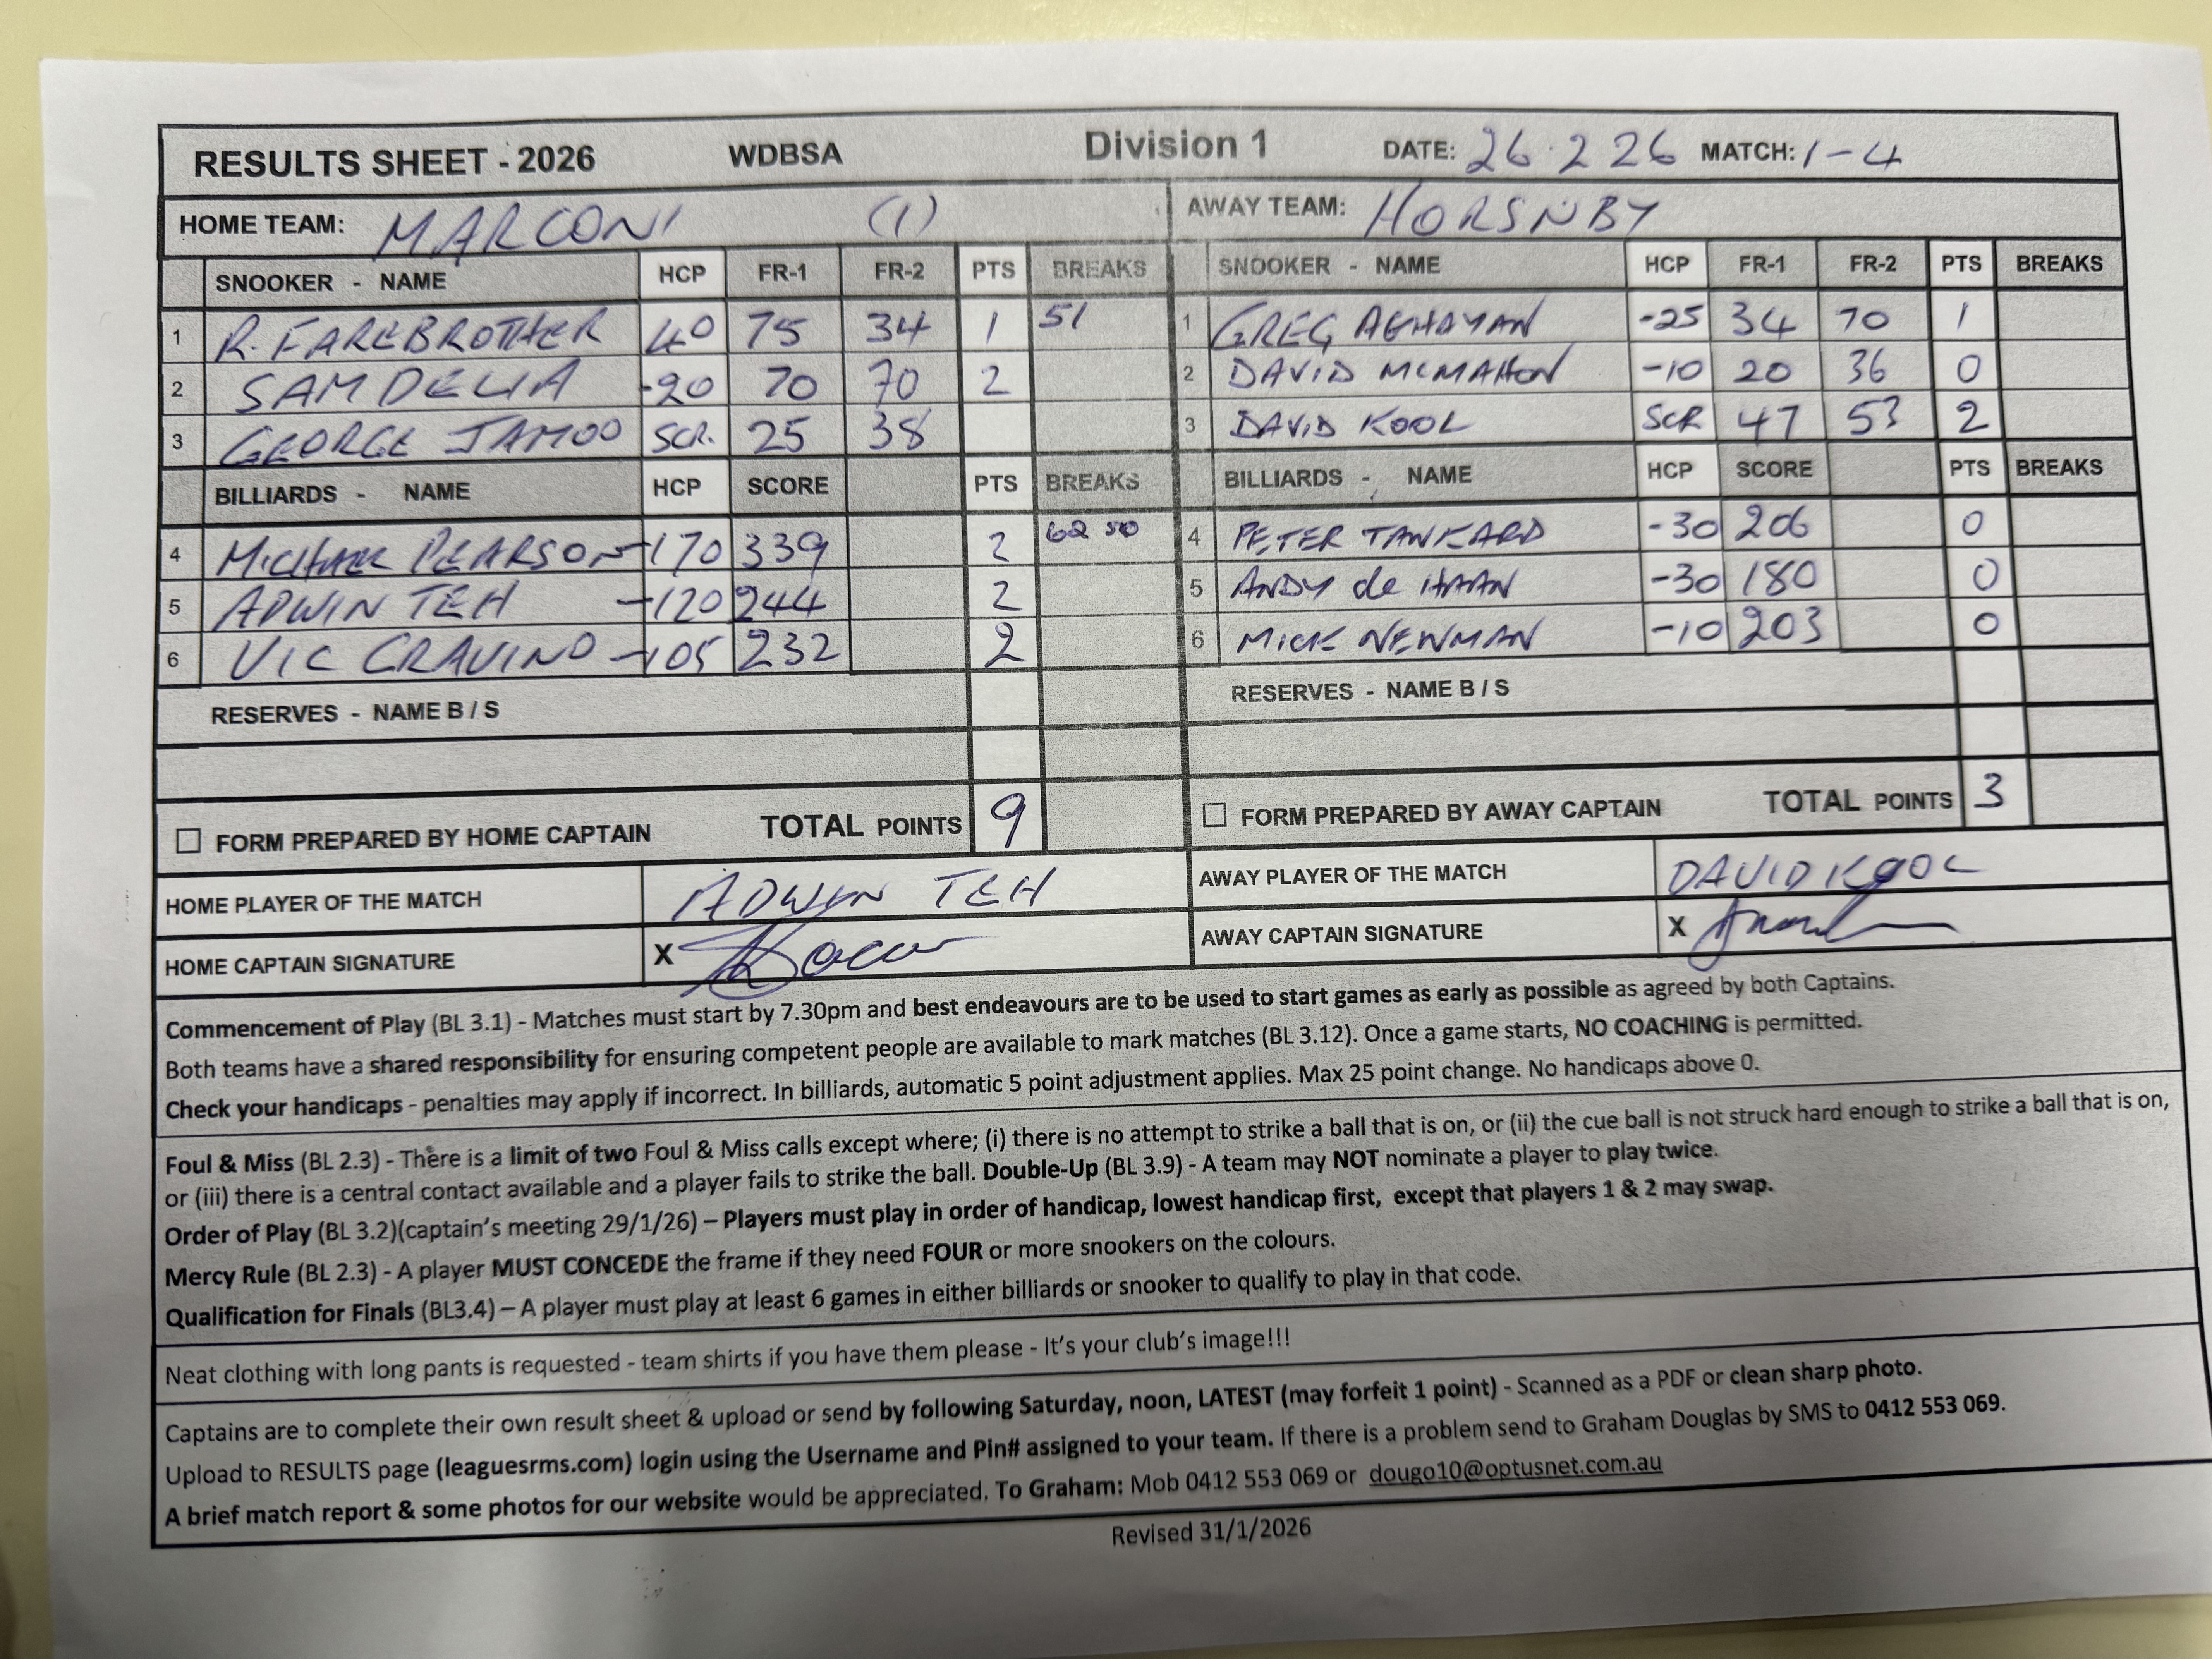 RESULTS SHEET - 2026 WDBSA Division 1 DATE: 26.2.26 MATCH: 1-4
HOME TEAM: MARCONI (1) AWAY TEAM: HORSNBY
SNOOKER - NAME HCP FR-1 FR-2 PTS BREAKS SNOOKER - NAME HCP FR-1 FR-2 PTS BREAKS
1 R. FAREBROTHER 40 75 34 1 51 1 GREG AGHAYAN -25 34 70 1
2 SAM DELIA -20 70 70 2 2 DAVID MCMAHON -10 20 36 0
3 GEORGE JAMOO SCR. 25 38 3 DAVID KOOL SCR 47 53 2
BILLIARDS - NAME HCP SCORE PTS BREAKS BILLIARDS - NAME HCP SCORE PTS BREAKS
4 MICHAEL PEARSON -170 339 2 62 50 4 PETER TANKARD -30 206 0
5 ADWIN TEH -120 244 2 5 ANDY de HAAN -30 180 0
6 VIC CRAVINO -105 232 2 6 MICK NEWMAN -10 203 0
RESERVES - NAME B / S RESERVES - NAME B / S
FORM PREPARED BY HOME CAPTAIN TOTAL POINTS 9 FORM PREPARED BY AWAY CAPTAIN TOTAL POINTS 3
HOME PLAYER OF THE MATCH ADWIN TEH AWAY PLAYER OF THE MATCH DAVID KOOL
HOME CAPTAIN SIGNATURE X AWAY CAPTAIN SIGNATURE X
Commencement of Play (BL 3.1) - Matches must start by 7.30pm and best endeavours are to be used to start games as early as possible as agreed by both Captains.
Both teams have a shared responsibility for ensuring competent people are available to mark matches (BL 3.12). Once a game starts, NO COACHING is permitted.
Check your handicaps - penalties may apply if incorrect. In billiards, automatic 5 point adjustment applies. Max 25 point change. No handicaps above 0.
Foul & Miss (BL 2.3) - There is a limit of two Foul & Miss calls except where; (i) there is no attempt to strike a ball that is on, or (ii) the cue ball is not struck hard enough to strike a ball that is on,
or (iii) there is a central contact available and a player fails to strike the ball. Double-Up (BL 3.9) - A team may NOT nominate a player to play twice.
Order of Play (BL 3.2)(captain's meeting 29/1/26) – Players must play in order of handicap, lowest handicap first, except that players 1 & 2 may swap.
Mercy Rule (BL 2.3) - A player MUST CONCEDE the frame if they need FOUR or more snookers on the colours.
Qualification for Finals (BL3.4) – A player must play at least 6 games in either billiards or snooker to qualify to play in that code.
Neat clothing with long pants is requested - team shirts if you have them please - It's your club's image!!!
Captains are to complete their own result sheet & upload or send by following Saturday, noon, LATEST (may forfeit 1 point) - Scanned as a PDF or clean sharp photo.
Upload to RESULTS page (leaguesrms.com) login using the Username and Pin# assigned to your team. If there is a problem send to Graham Douglas by SMS to 0412 553 069.
A brief match report & some photos for our website would be appreciated. To Graham: Mob 0412 553 069 or dougo10@optusnet.com.au
Revised 31/1/2026